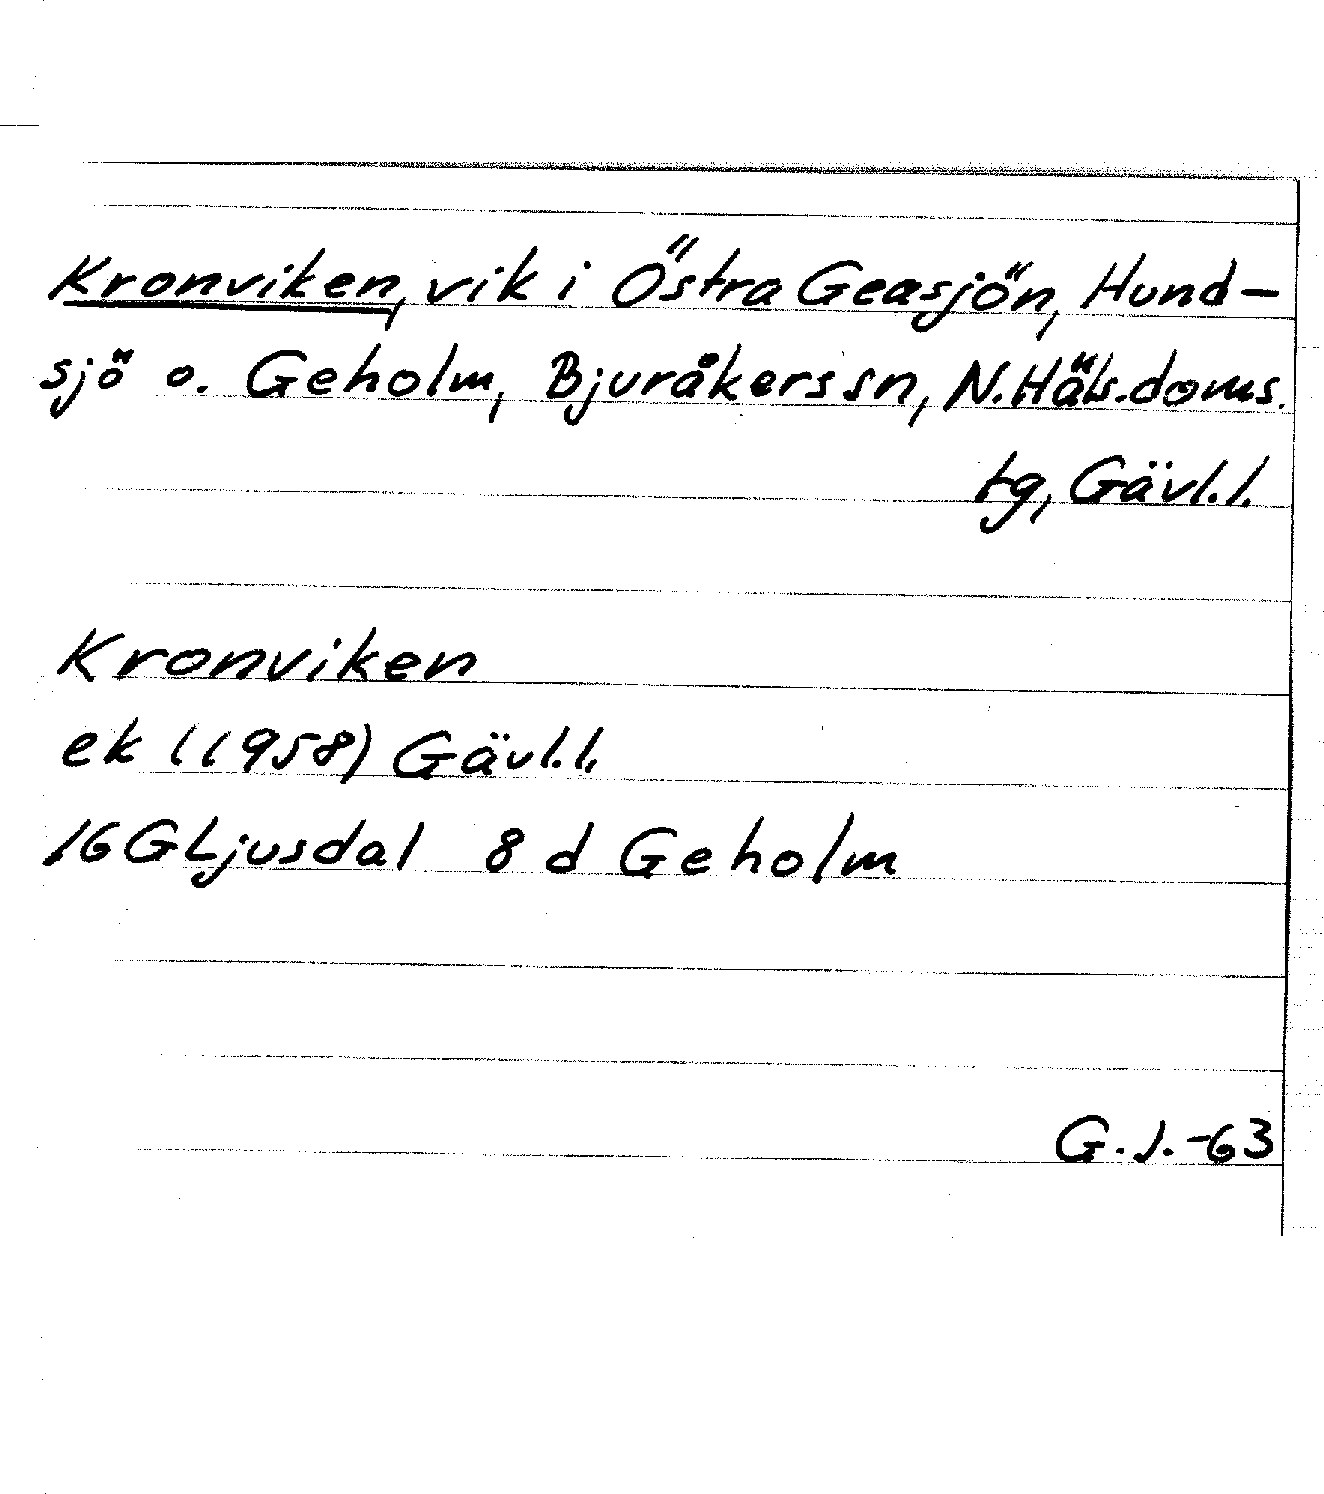 Kronviken, vik i Östra Geasjön, Hund-
sjö o. Geholm, Bjuråkers sn, N. Häls. doms.
tg, Gävl. l.
Kronviken
ek (1958) Gävl. l.
16 G Ljusdal 8 d Geholm
G. J. -63